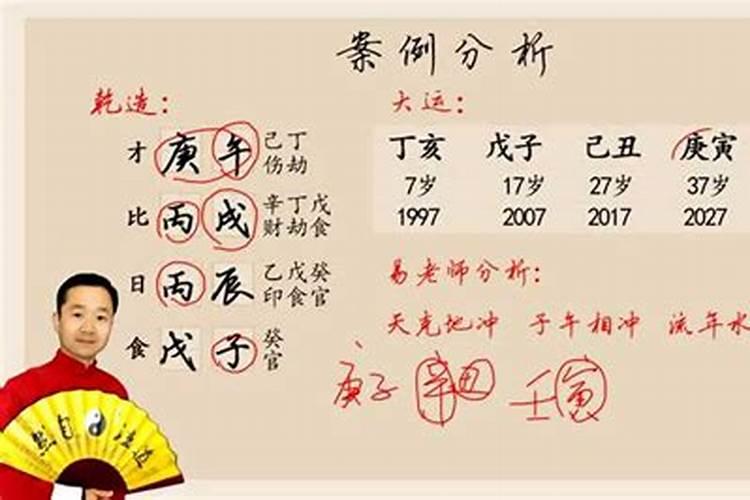 案例分析
乾造：
才 庚 午 己丁
伤劫
比 丙 戌 辛丁戊
财劫食
日 丙 辰 乙戊癸
印食官
食 戊 子 癸
官
大运：
丁亥 戊子 己丑 庚寅
7岁 17岁 27岁 37岁
1997 2007 2017 2027
易老师分析：
天克地冲 子午相冲 流年水
庚子 辛丑 壬寅
然自 法道